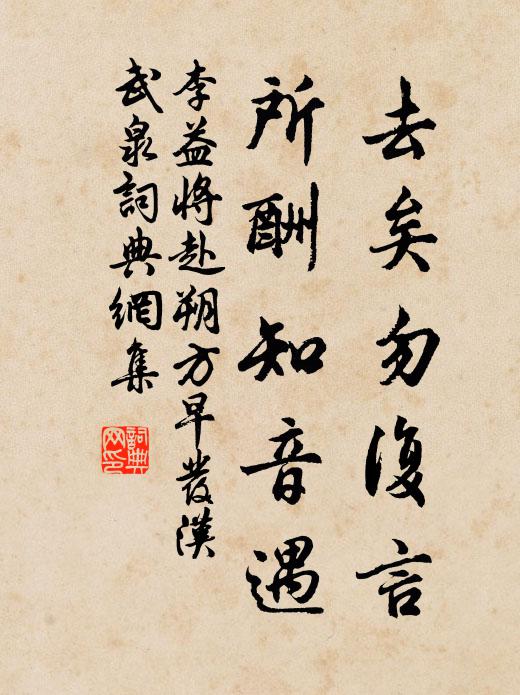 去矣勿復言
所酬知音遇
李益將赴朔方早發漢
武泉詞典網集
詞典
网印